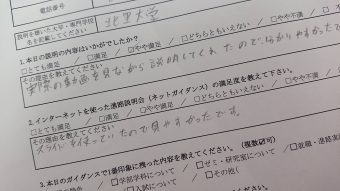 電話番号
説明を聴いた大学・専門学校名を記載してください
北里大学
1.本日の説明の内容はいかがでしたか?
□とても満足 / □満足 / □やや満足 / □どちらともいえない / □やや不満 / □不満
その理由を教えてください
実際の動画を見ながら説明してくれたので分かりやすかったです
2.インターネットを使った進路説明会(ネットガイダンス)の満足度を教えて下さい。
□とても満足 / □満足 / □やや満足 / □どちらともいえない / □やや不満 /
その理由を教えてください
スライドを使っていたので見やすかったです。
3.本日のガイダンスで1番印象に残った内容を教えてください。(複数可)
□学部学科について / □ゼミ・研究室について / □就職・進路
□入試について / □その他(